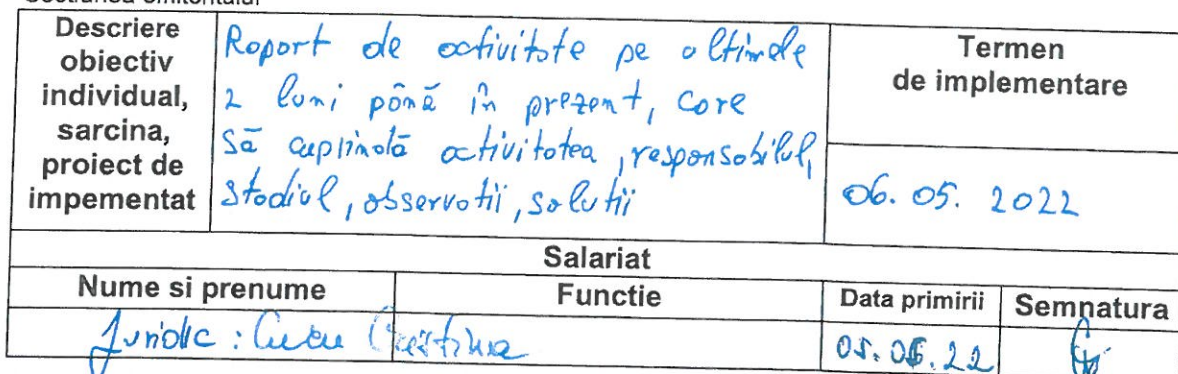 Descriere
obiectiv
individual,
sarcina,
proiect de
impementat
Raport de activitate pe ultimele
2 luni până în prezent, care
să cuprindă activitatea, responsabilul,
stadiul, observatii, solutii
Termen
de implementare
06. 05. 2022
Salariat
Nume si prenume
Functie
Data primirii
Semnatura
Juridic : Cristina
05. 05. 22